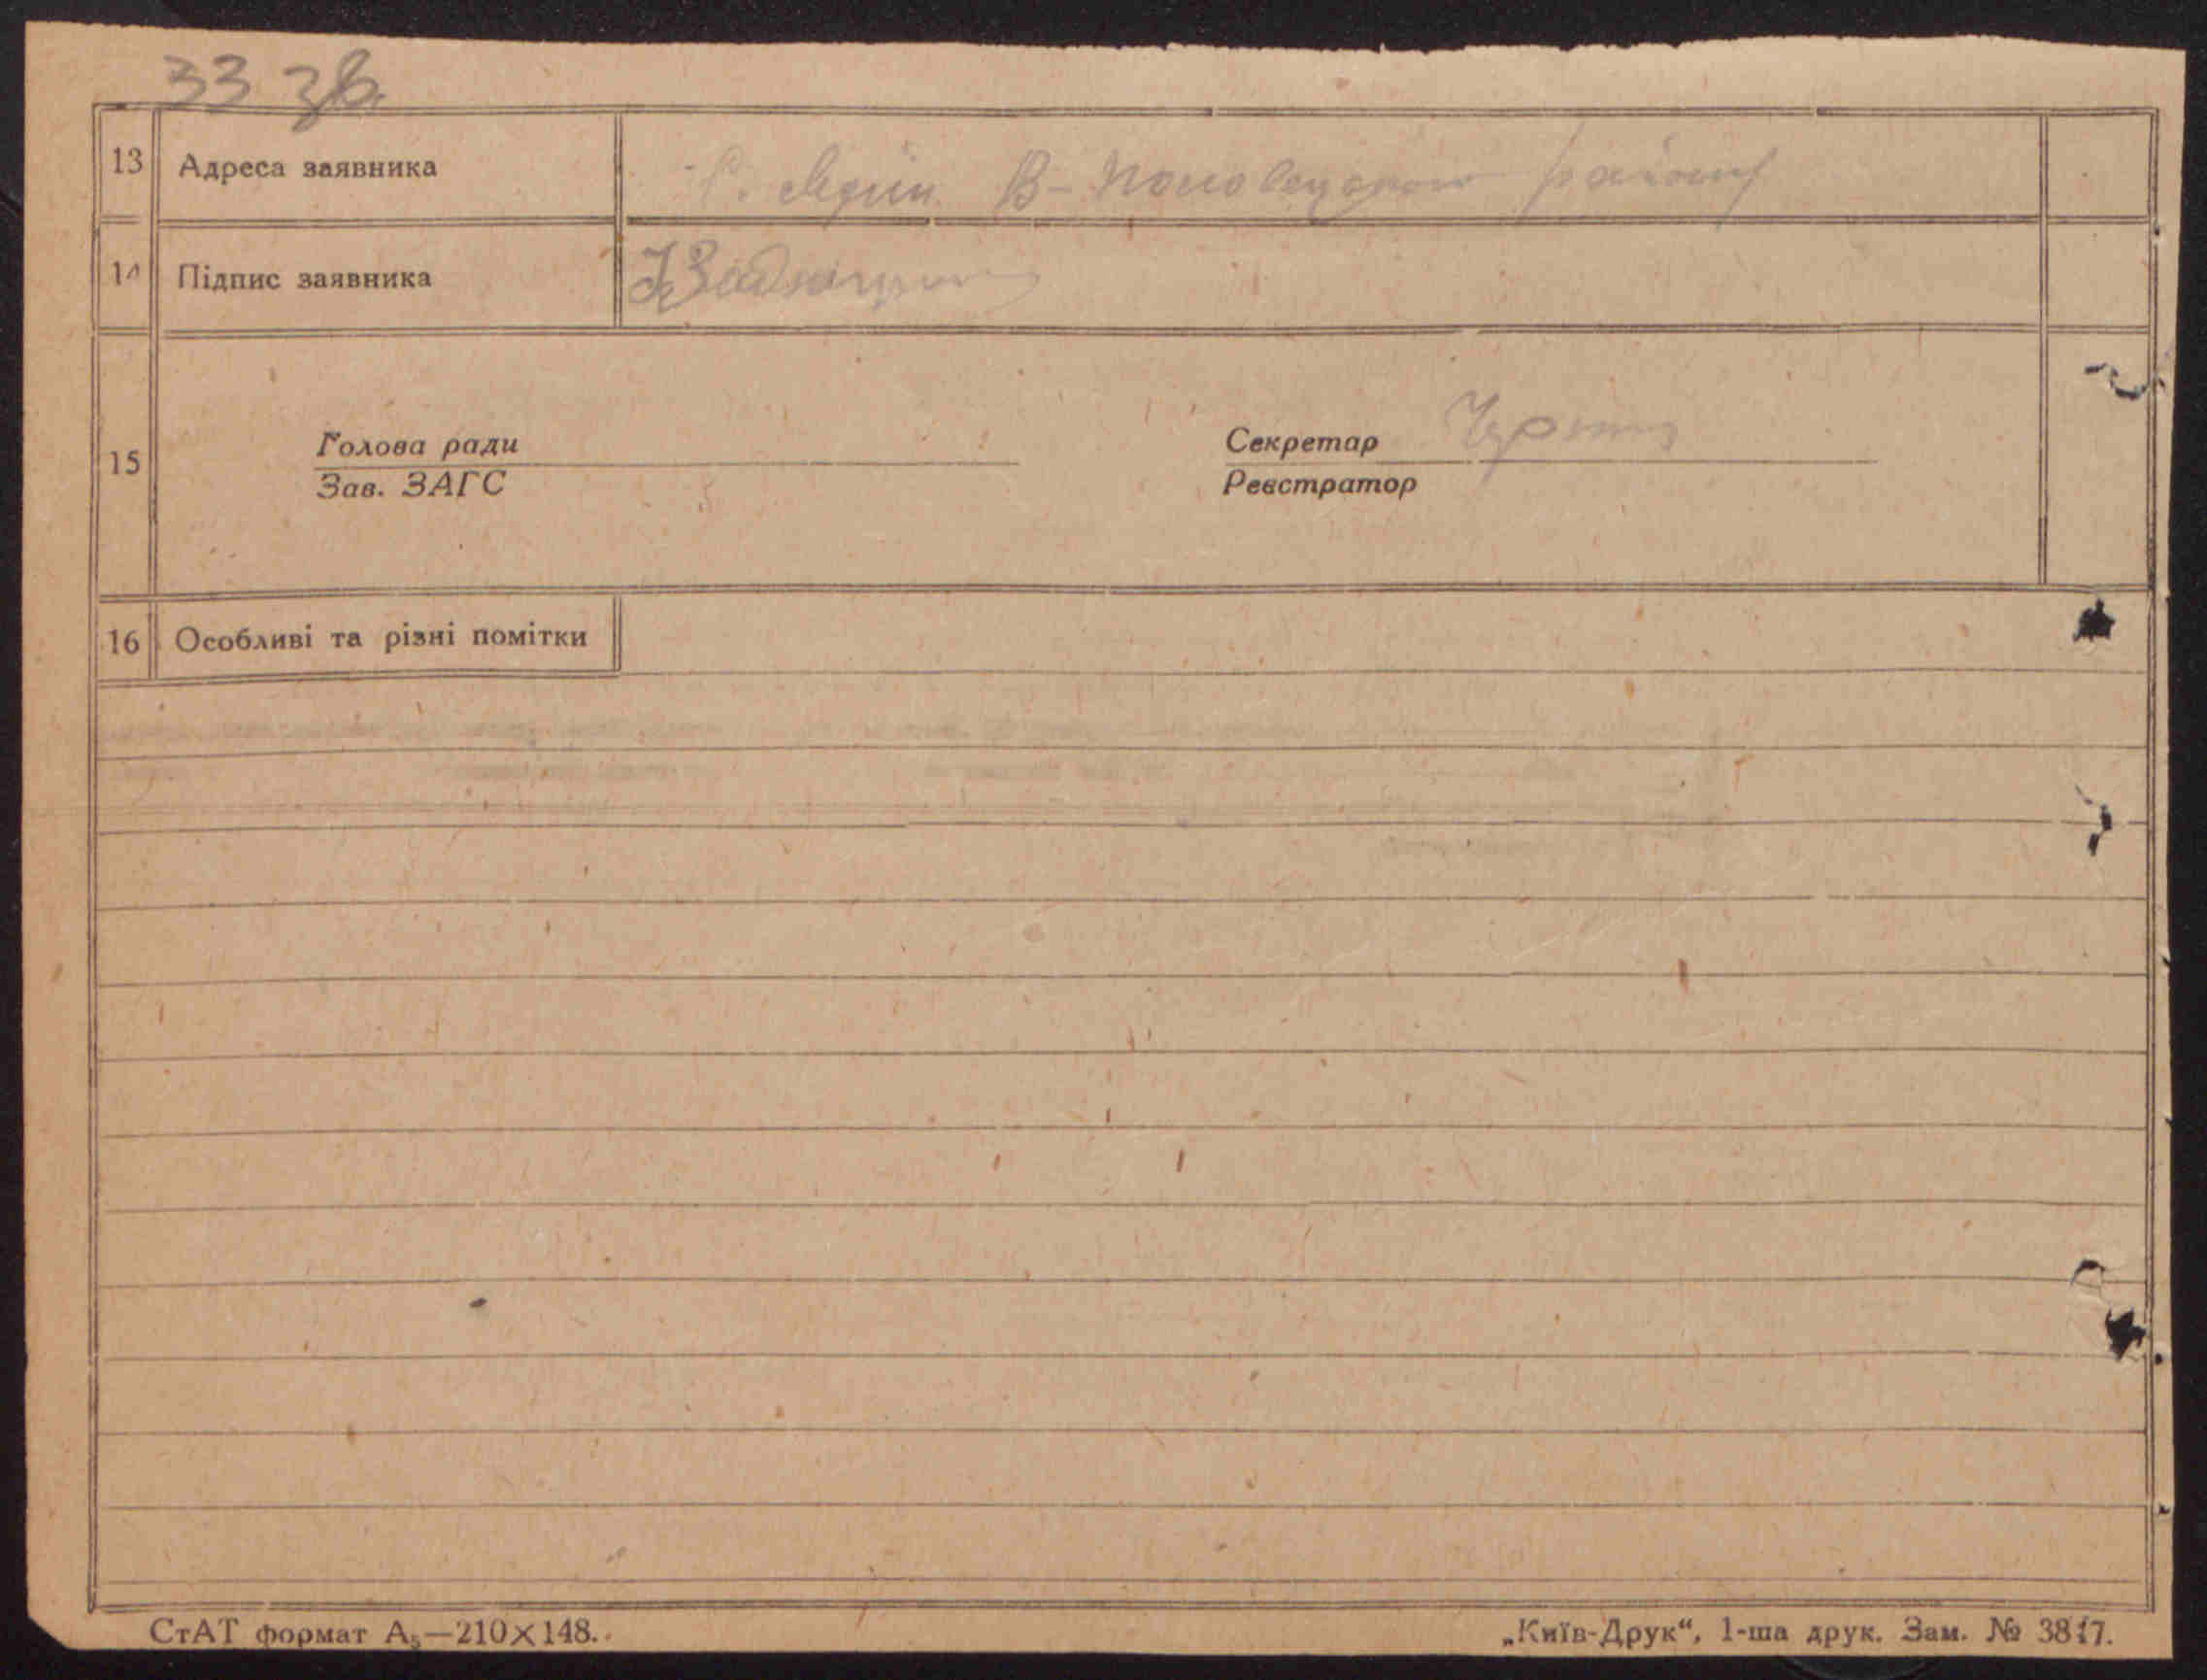 33 зв.
13 Адреса заявника С. В-Половецького району
14 Підпис заявника
15 Голова ради Секретар
Зав. ЗАГС Реєстратор
16 Особливі та різні помітки
СтАТ формат А₅—210×148. „Київ-Друк“, 1-ша друк. Зам. №